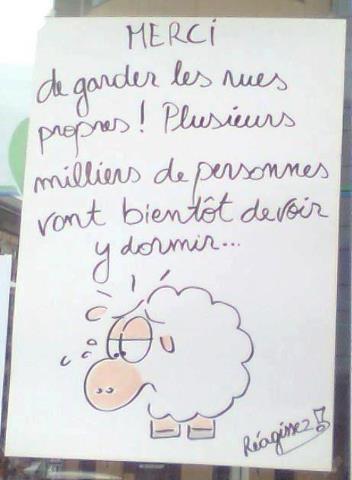 MERCI
de garder les rues
propres! Plusieurs
milliers de personnes
vont bientôt devoir
y dormir...
Réagissez!